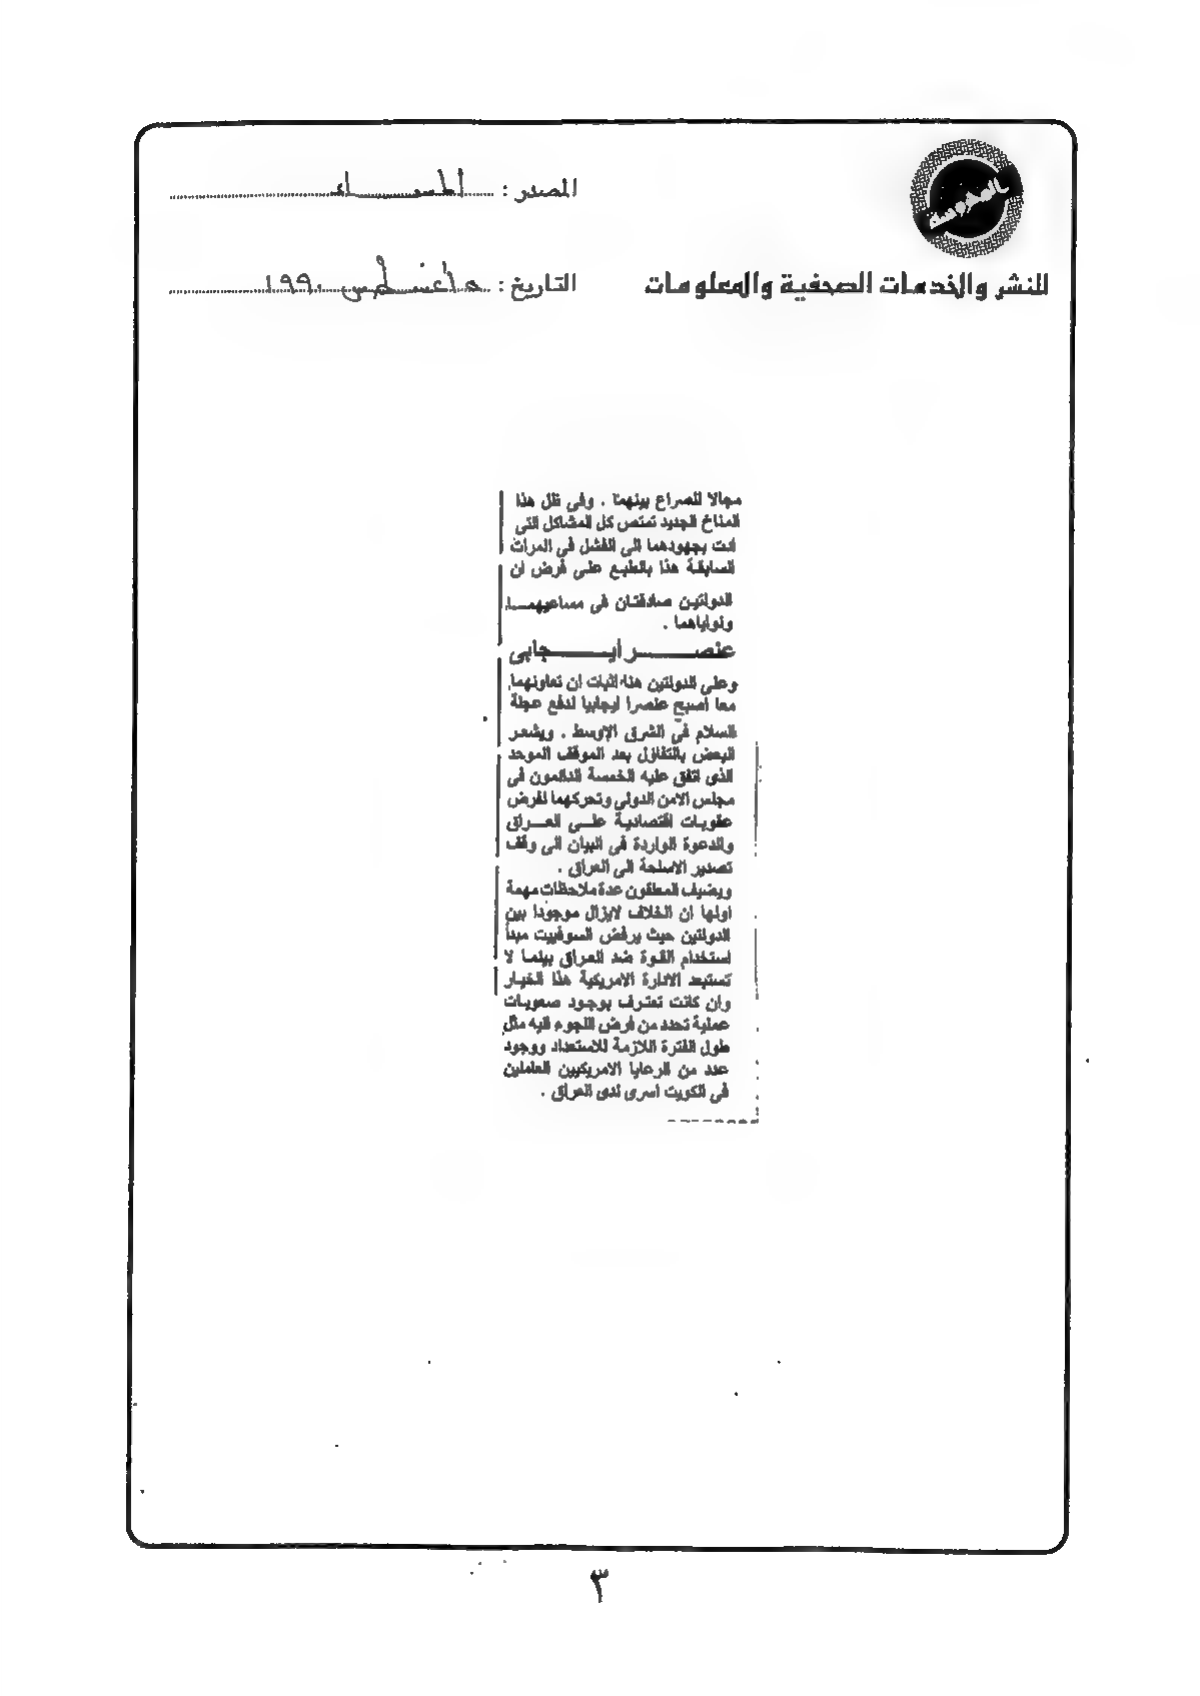 المحروسة
للنشر والخدمات الصحفية والمعلومات
المصدر : المساء
التاريخ : ٥ أغسطس ١٩٩٠
مجالا للصراع بينهما . وفى ظل هذا
المناخ الجديد تمتص كل المشاكل التى
أدت بجهودهما الى الفشل فى المرات
السابقة هذا بالطبع على فرض ان
الدولتين صادقتان فى مساعيهما
ونواياهما .
عنصر ايجابى
وعلى الدولتين هنا اثبات ان تعاونهما
معا اصبح عنصرا ايجابيا لدفع عجلة
السلام فى الشرق الاوسط . ويشعر
البعض بالتفاؤل بعد الموقف الموحد
الذى اتفق عليه الخمسة الدائمون فى
مجلس الامن الدولى وتحركهما لفرض
عقوبات اقتصادية على العراق
والدعوة الواردة فى البيان الى وقف
تصدير الاسلحة الى العراق .
ويضيف المعلقون عدة ملاحظات مهمة
اولها ان الخلاف لايزال موجودا بين
الدولتين حيث يرفض السوفييت مبدأ
استخدام القوة ضد العراق بينما لا
تستبعد الادارة الامريكية هذا الخيار
وان كانت تعترف بوجود صعوبات
عملية تحدد من فرض اللجوء اليه مثل
طول الفترة اللازمة للاستعداد ووجود
عدد من الرعايا الامريكيين العاملين
فى الكويت اسرى لدى العراق .
٣